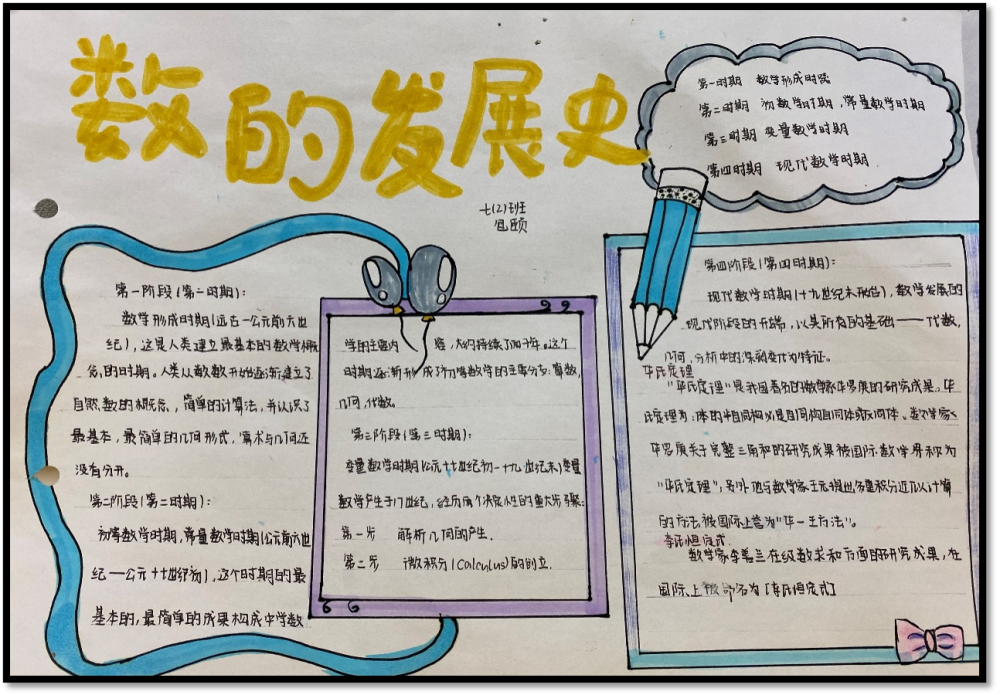 数的发展史
第一时期 数学形成时期
第二时期 初数学时期,常量数学时期
第三时期 变量数学时期
第四时期 现代数学时期
七(2)班
第一阶段(第一时期):
数学形成时期(远古一公元前六世
纪),这是人类建立最基本的数学概
念,的时期。人类从散数开始逐渐建立了
自然数的概念,简单的计算法,并认识了
最基本,最简单的几何形式,算术与几何还
没有分开。
第二阶段(第二时期):
初等数学时期,常量数学时期(公元前六世
纪一公元十七世纪初),这个时期的最
基本的,最简单的成果构成中学数
学的主要内容,大约持续了两千年。这个
时期逐渐形成了初等数学的主要分支:算数,
几何,代数。
第三阶段(第三时期):
变量数学时期(公元十七世纪初一十九世纪末)变量
数学产生于17世纪,经历两个决定性的重大步骤:
第一步 解析几何的产生.
第二步 微积分(Calculus)的创立.
第四阶段(第四时期):
现代数学时期(十九世纪末开始),数学发展的
现代阶段的开端,以其所有的基础——代数,
几何,分析中的深刻变化为特征。
华氏定理
"华氏定理"是我国著名的数学家华罗庚的研究成果。华
氏定理为:体的半自同构必是自同构自同体或反同体。数学家
华罗庚关于完整三角和的研究成果被国际数学界称为
"华氏定理",另外他与数学家王元提出多重积分近似计算
的方法被国际上誉为"华一王方法"。
李氏恒定式
数学家李善兰在级数求和方面的研究成果,在
国际上被命名为[李氏恒定式]